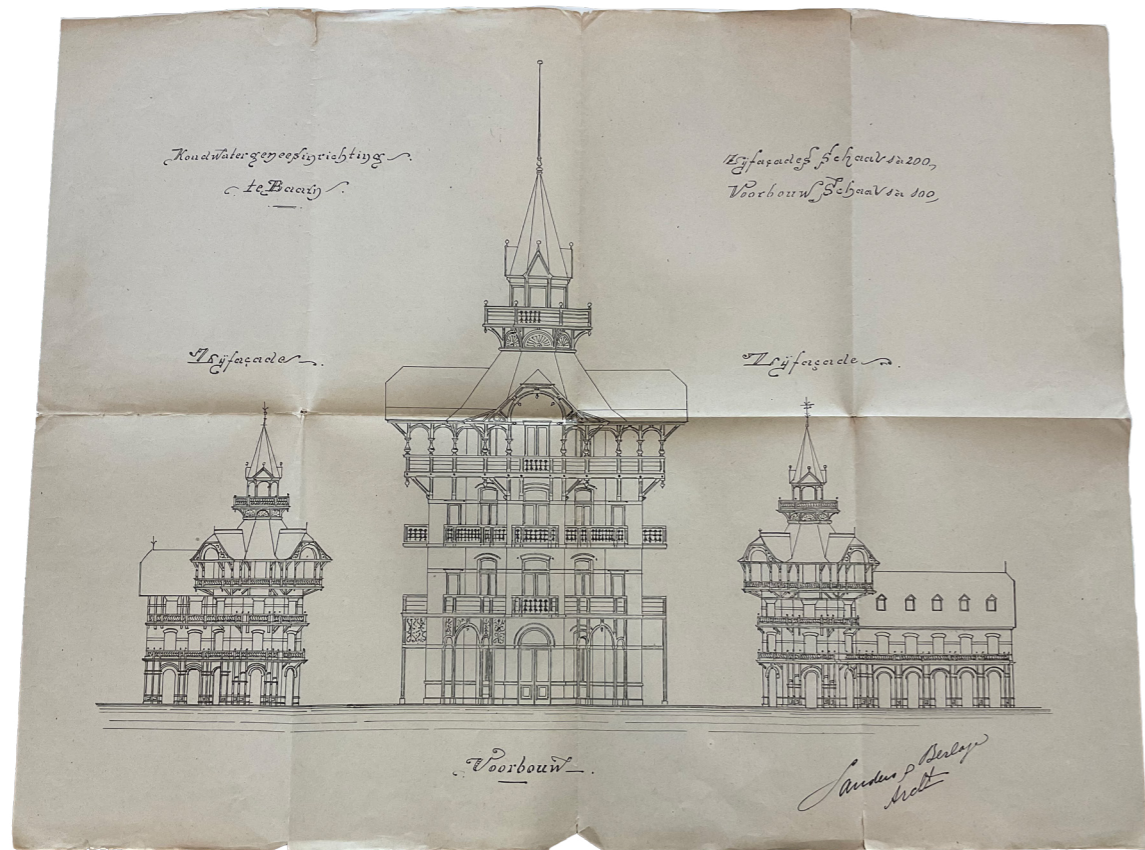 Koudwatergeneesinrichting
te Baarn
Zijfaçades Schaal 1 à 200,
Voorbouw Schaal 1 à 100,
Zijfaçade
Zijfaçade
Voorbouw
Sanders & Berlage
Archt